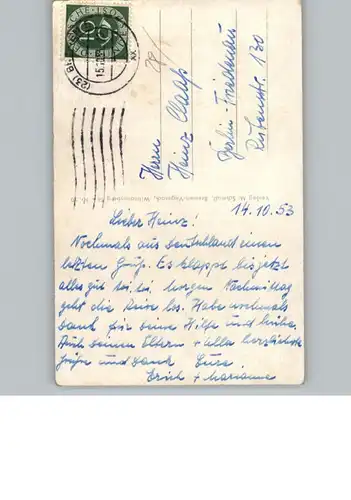 DEUTSCHE BUNDESPOST
10
(23)
15.10.
Herrn
Heinz Claas
Berlin-Friedenau
Rubensstr. 130
Verlag W. Schmidt, Bremen-Vegesack,
14.10.53
Lieber Heinz!
Nochmals aus Deutschland einen
letzten Gruß. Es klappt bis jetzt
alles gut toi toi. Morgen Nachmittag
geht die Reise los. Habe nochmals
Dank für deine Hilfe und Mühe.
Auch deinen Eltern + Ulla herzlichste
Grüße und Dank Eure
Erich + Marianne